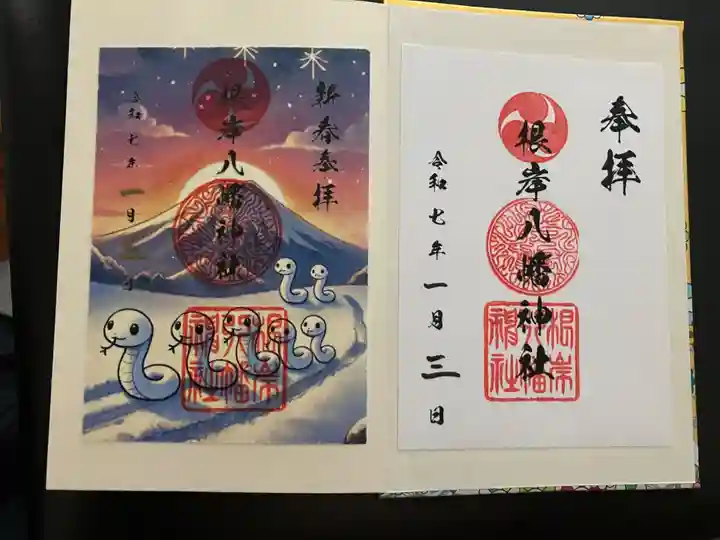 奉拝
根岸八幡神社
令和七年一月三日
根岸
八幡
神社
新春参拝
根岸八幡神社
令和七年一月三日
根岸
八幡
神社